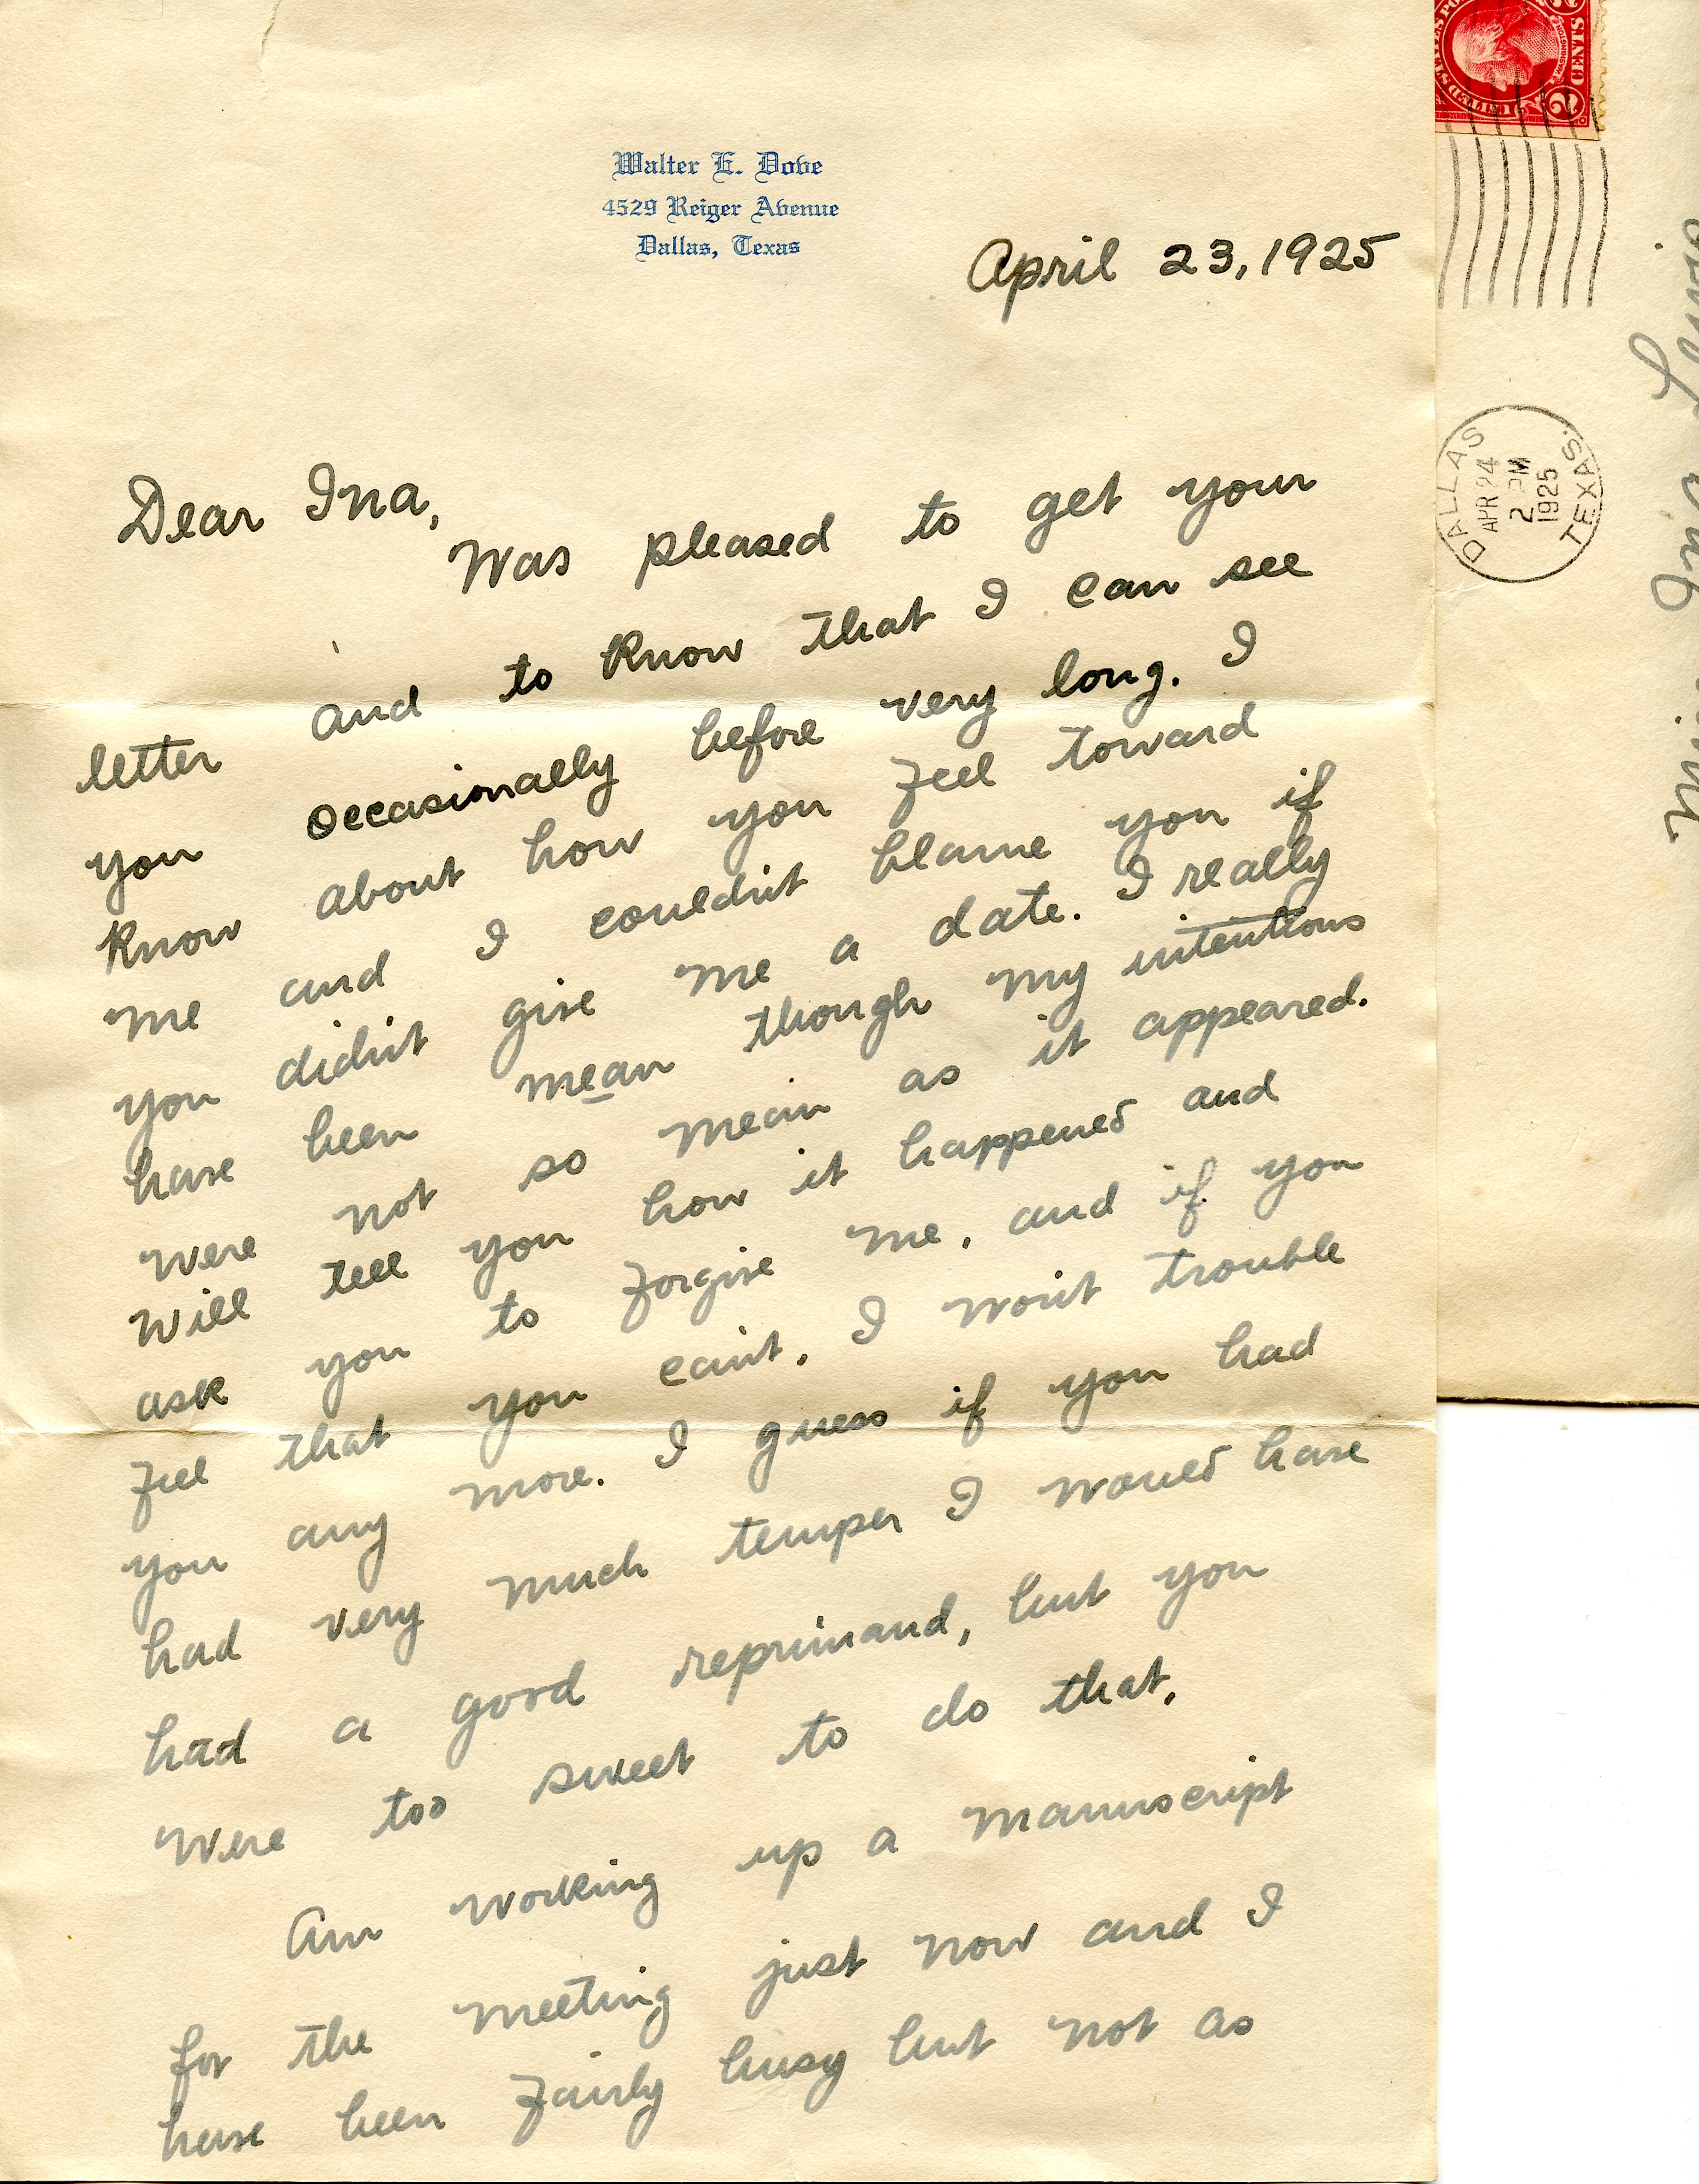 Walter E. Dove
4529 Reiger Avenue
Dallas, Texas
April 23, 1925
Dear Ina,
Was pleased to get your
letter and to know that I can see
you occasionally before very long. I
know about how you feel toward
me and I couldn't blame you if
you didn't give me a date. I really
have been mean though my intentions
were not so mean as it appeared.
Will tell you how it happened and
ask you to forgive me, and if you
feel that you can't, I won't trouble
you any more. I guess if you had
had very much temper I would have
had a good reprimand, but you
were too sweet to do that.
Am working up a manuscript
for the meeting just now and I
have been fairly busy but not as
UNITED STATES POS
2 CENTS 2
DALLAS
APR 24
2 PM
1925
TEXAS.
Ina